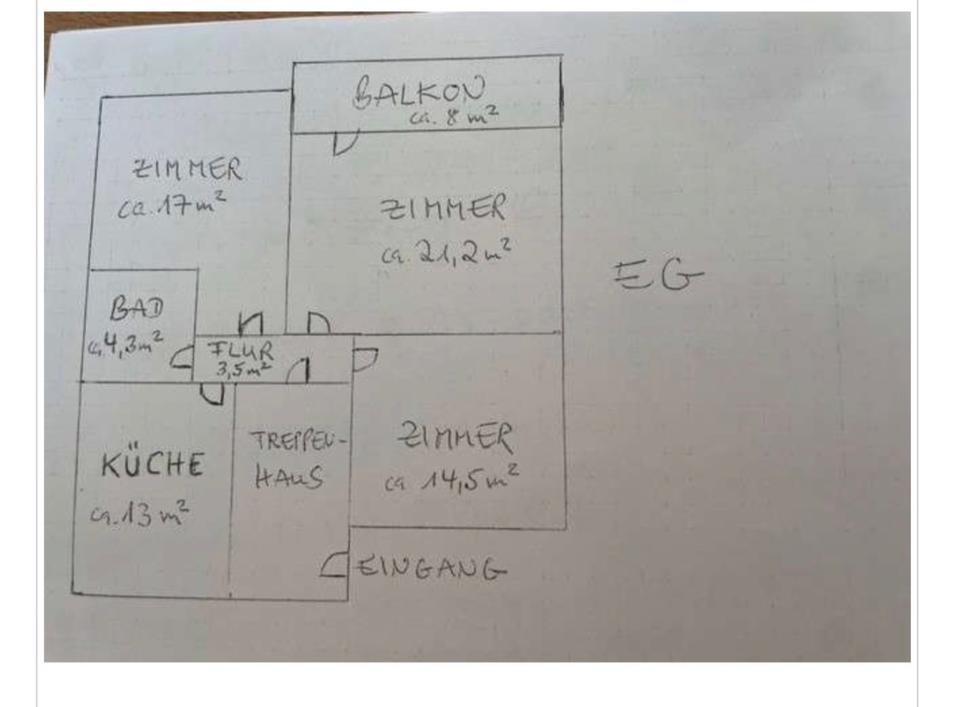 BALKON
ca. 8 m²
ZIMMER
ca. 17 m²
ZIMMER
ca. 21,2 m²
EG
BAD
ca. 4,3 m²
FLUR
3,5 m²
KÜCHE
ca. 13 m²
TREPPEN-
HAUS
ZIMMER
ca 14,5 m²
EINGANG